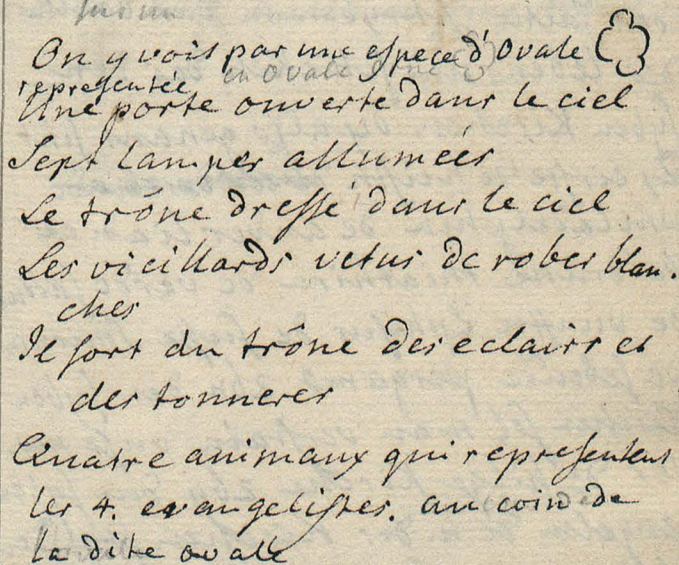 On y vois par une espece d'ovale
en ovale
representée
Une porte ouverte dans le ciel
Sept lampes allumées
Le trône dressé dans le ciel
Les vieillards vetus de robes blan-
ches
Il sort du trône des eclairs et
des tonneres
Quatre animaux qui representent
les 4. evangelistes. au coin de
la dite ovale